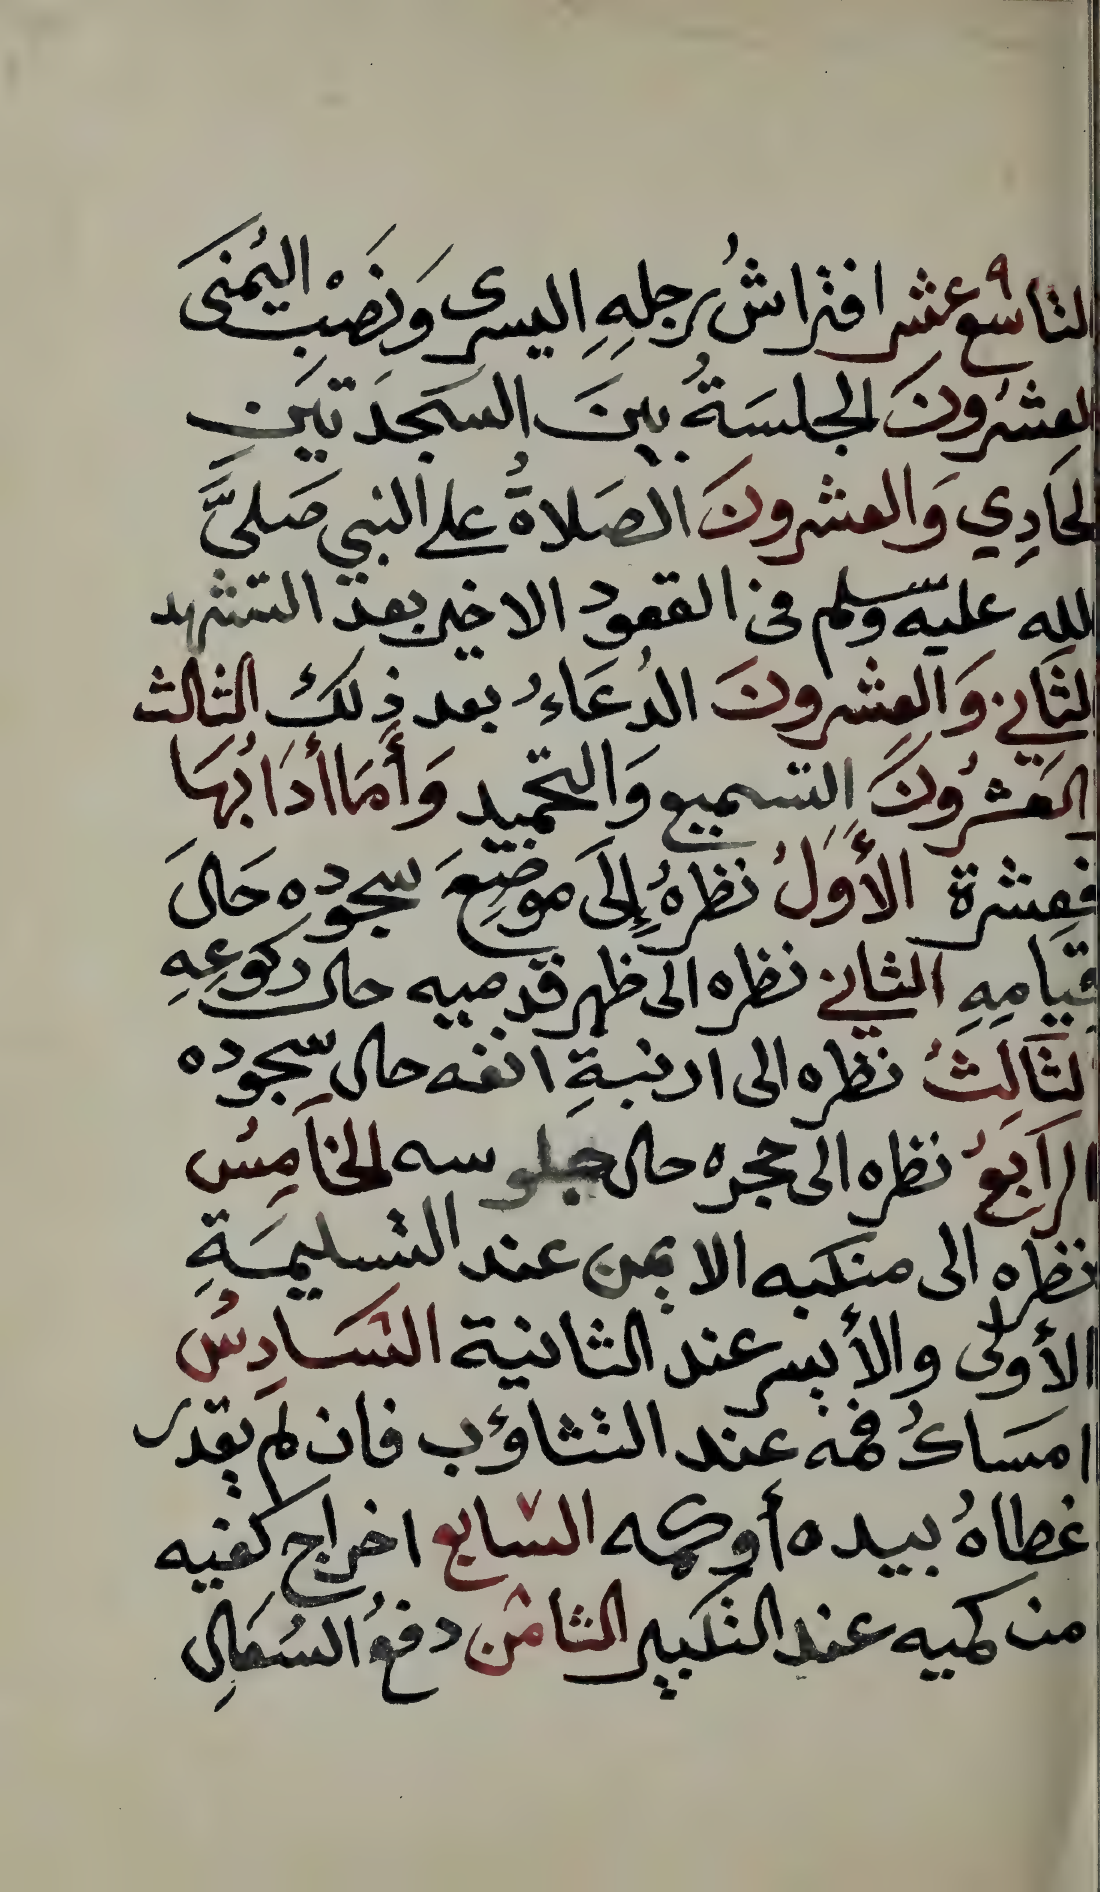 التاسع ٩ عشر افتراشُ رجلِهِ اليسرى وَنَصْب اليُمنى
العشرُونَ الجلسَةُ بينَ السَجدَتين
الحَادِي وَالعشرونَ الصَلاةُ على النبي صَلىَّ
الله عليه وسلم فى القعود الاخير بعد التشهد
الثَاني وَالعِشرونَ الدُعَاءُ بعد ذِلك الثالث
وَالعَشرُونَ التسميع وَالتحميد وَأَمَا أدَابُهَا
فعشرة الأَوَلُ نظرهُ إِلَى موضِعَ سجوده حَالَ
قيامِهِ الثاني نظره الى ظهر قدميه حال ركوعِهِ
الثَالثُ نظره الى ارنبةِ انفه حال سجوده
الرَابعُ نظره الى حجره حال جلوسه الخَامِسُ
نظره الى منكبه الايمن عند التسليمَةِ
الأولى والأيسر عند الثانية السَادِسُ ٦
امسَاكُ فمه عند التثاؤب فان لم يقدر
غطاهُ بيده أو كمه السابع ٧ اخراج كفيه
من كميه عند التكبير الثامن ٨ دفعُ السُعَالِ